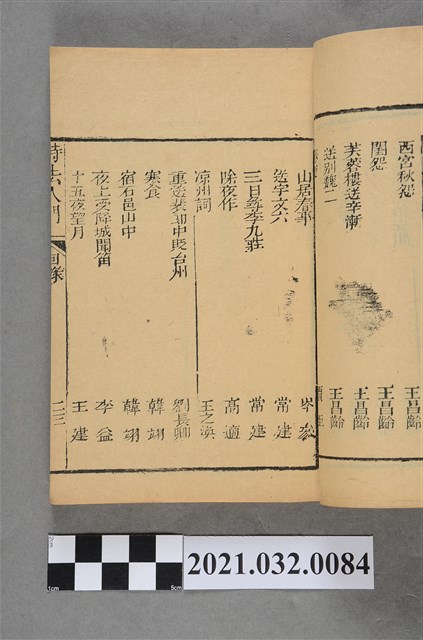 西宮秋怨 王昌齡
閨怨 王昌齡
芙蓉樓送辛漸 王昌齡
送別魏二 王昌齡
山居春事 岑參
送宇文六 常建
三日尋李九莊 常建
除夜作 高適
凉州詞 王之渙
重送裴郎中貶台州 劉長卿
寒食 韓翊
宿石邑山中 韓翊
夜上受降城聞笛 李益
十五夜望月 王建
詩法入門 目錄
1cm 5cm
2021.032.0084